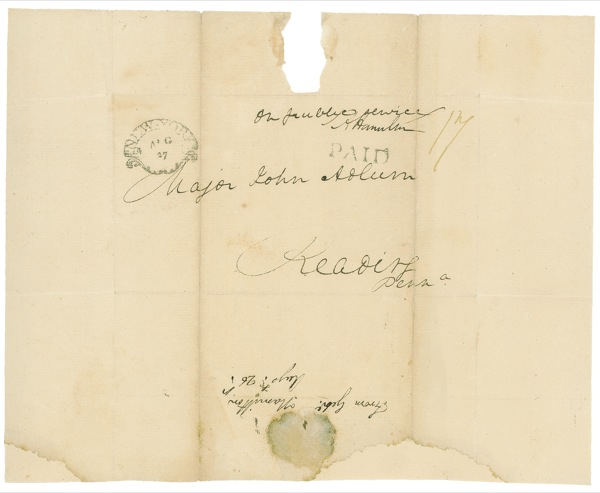 On public service
A Hamilton
NEW-YORK
AUG
27
PAID
Major John Adlum
Reading
Penna
From Genl.
Hamilton
Augt. 26